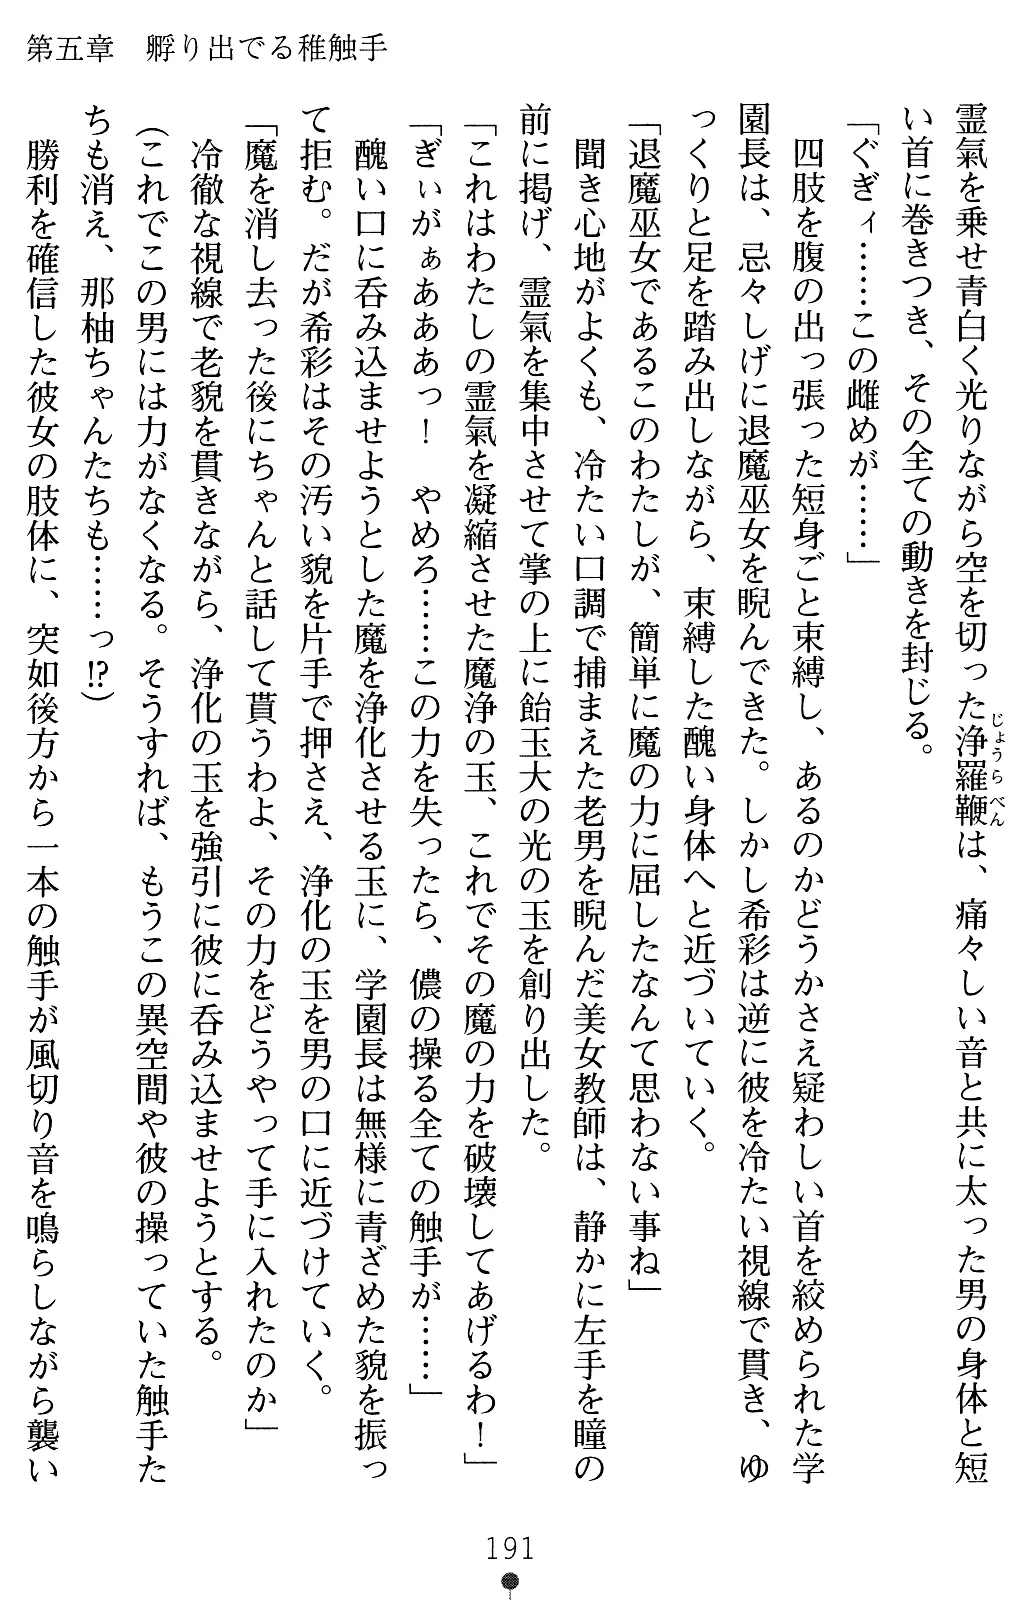 第五章　孵り出でる稚触手
霊氣を乗せ青白く光りながら空を切った浄羅鞭は、痛々しい音と共に太った男の身体と短
じょうらべん
い首に巻きつき、その全ての動きを封じる。
「ぐぎィ……この雌めが……」
　四肢を腹の出っ張った短身ごと束縛し、あるのかどうかさえ疑わしい首を絞められた学
園長は、忌々しげに退魔巫女を睨んできた。しかし希彩は逆に彼を冷たい視線で貫き、ゆ
っくりと足を踏み出しながら、束縛した醜い身体へと近づいていく。
「退魔巫女であるこのわたしが、簡単に魔の力に屈したなんて思わない事ね」
　聞き心地がよくも、冷たい口調で捕まえた老男を睨んだ美女教師は、静かに左手を瞳の
前に掲げ、霊氣を集中させて掌の上に飴玉大の光の玉を創り出した。
「これはわたしの霊氣を凝縮させた魔浄の玉、これでその魔の力を破壊してあげるわ！」
「ぎぃがぁあああっ！　やめろ……この力を失ったら、儂の操る全ての触手が……」
　醜い口に呑み込ませようとした魔を浄化させる玉に、学園長は無様に青ざめた貌を振っ
て拒む。だが希彩はその汚い貌を片手で押さえ、浄化の玉を男の口に近づけていく。
「魔を消し去った後にちゃんと話して貰うわよ、その力をどうやって手に入れたのか」
　冷徹な視線で老貌を貫きながら、浄化の玉を強引に彼に呑み込ませようとする。
（これでこの男には力がなくなる。そうすれば、もうこの異空間や彼の操っていた触手た
ちも消え、那柚ちゃんたちも……っ!?）
　勝利を確信した彼女の肢体に、突如後方から一本の触手が風切り音を鳴らしながら襲い
191